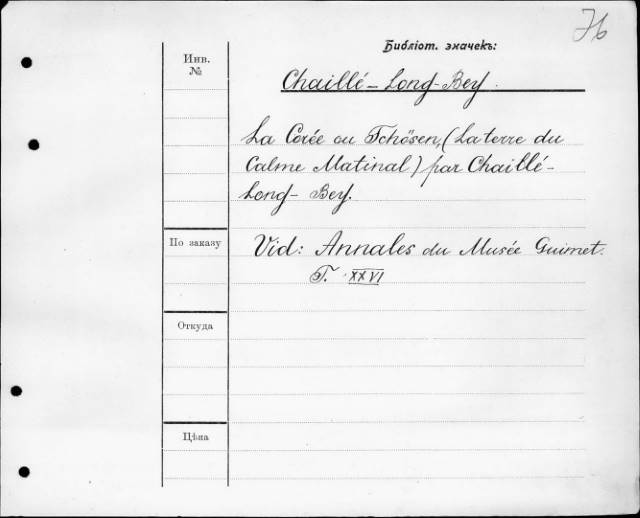 76
Библіот. значекъ:
Инв.
№
Chaillé-Long-Bey.
La Corée ou Tchösen, (La terre du
Calme Matinal) par Chaillé-
Long- Bey.
По заказу
Vid: Annales du Musée Guimet.
T. XXVI
Откуда
Цѣна